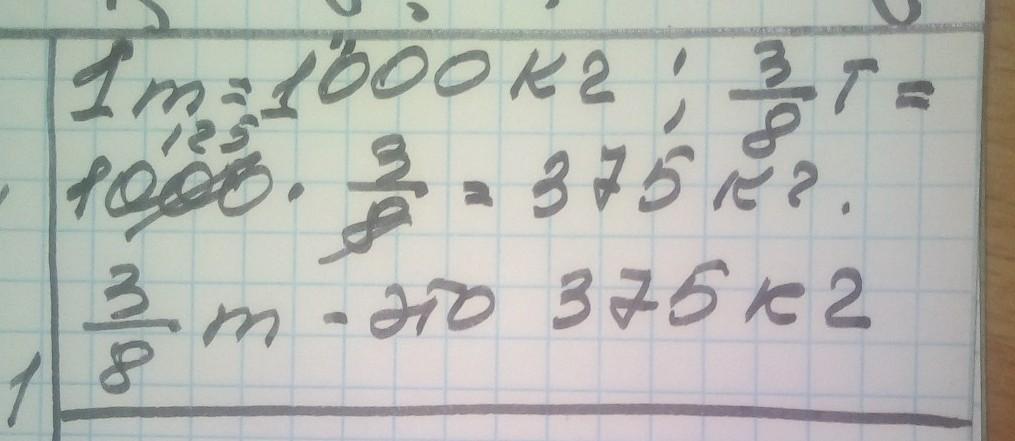 1т = 1000 кг; 3/8 т =
125
1000 · 3/8 = 375 кг.
3/8 т - это 375 кг
1